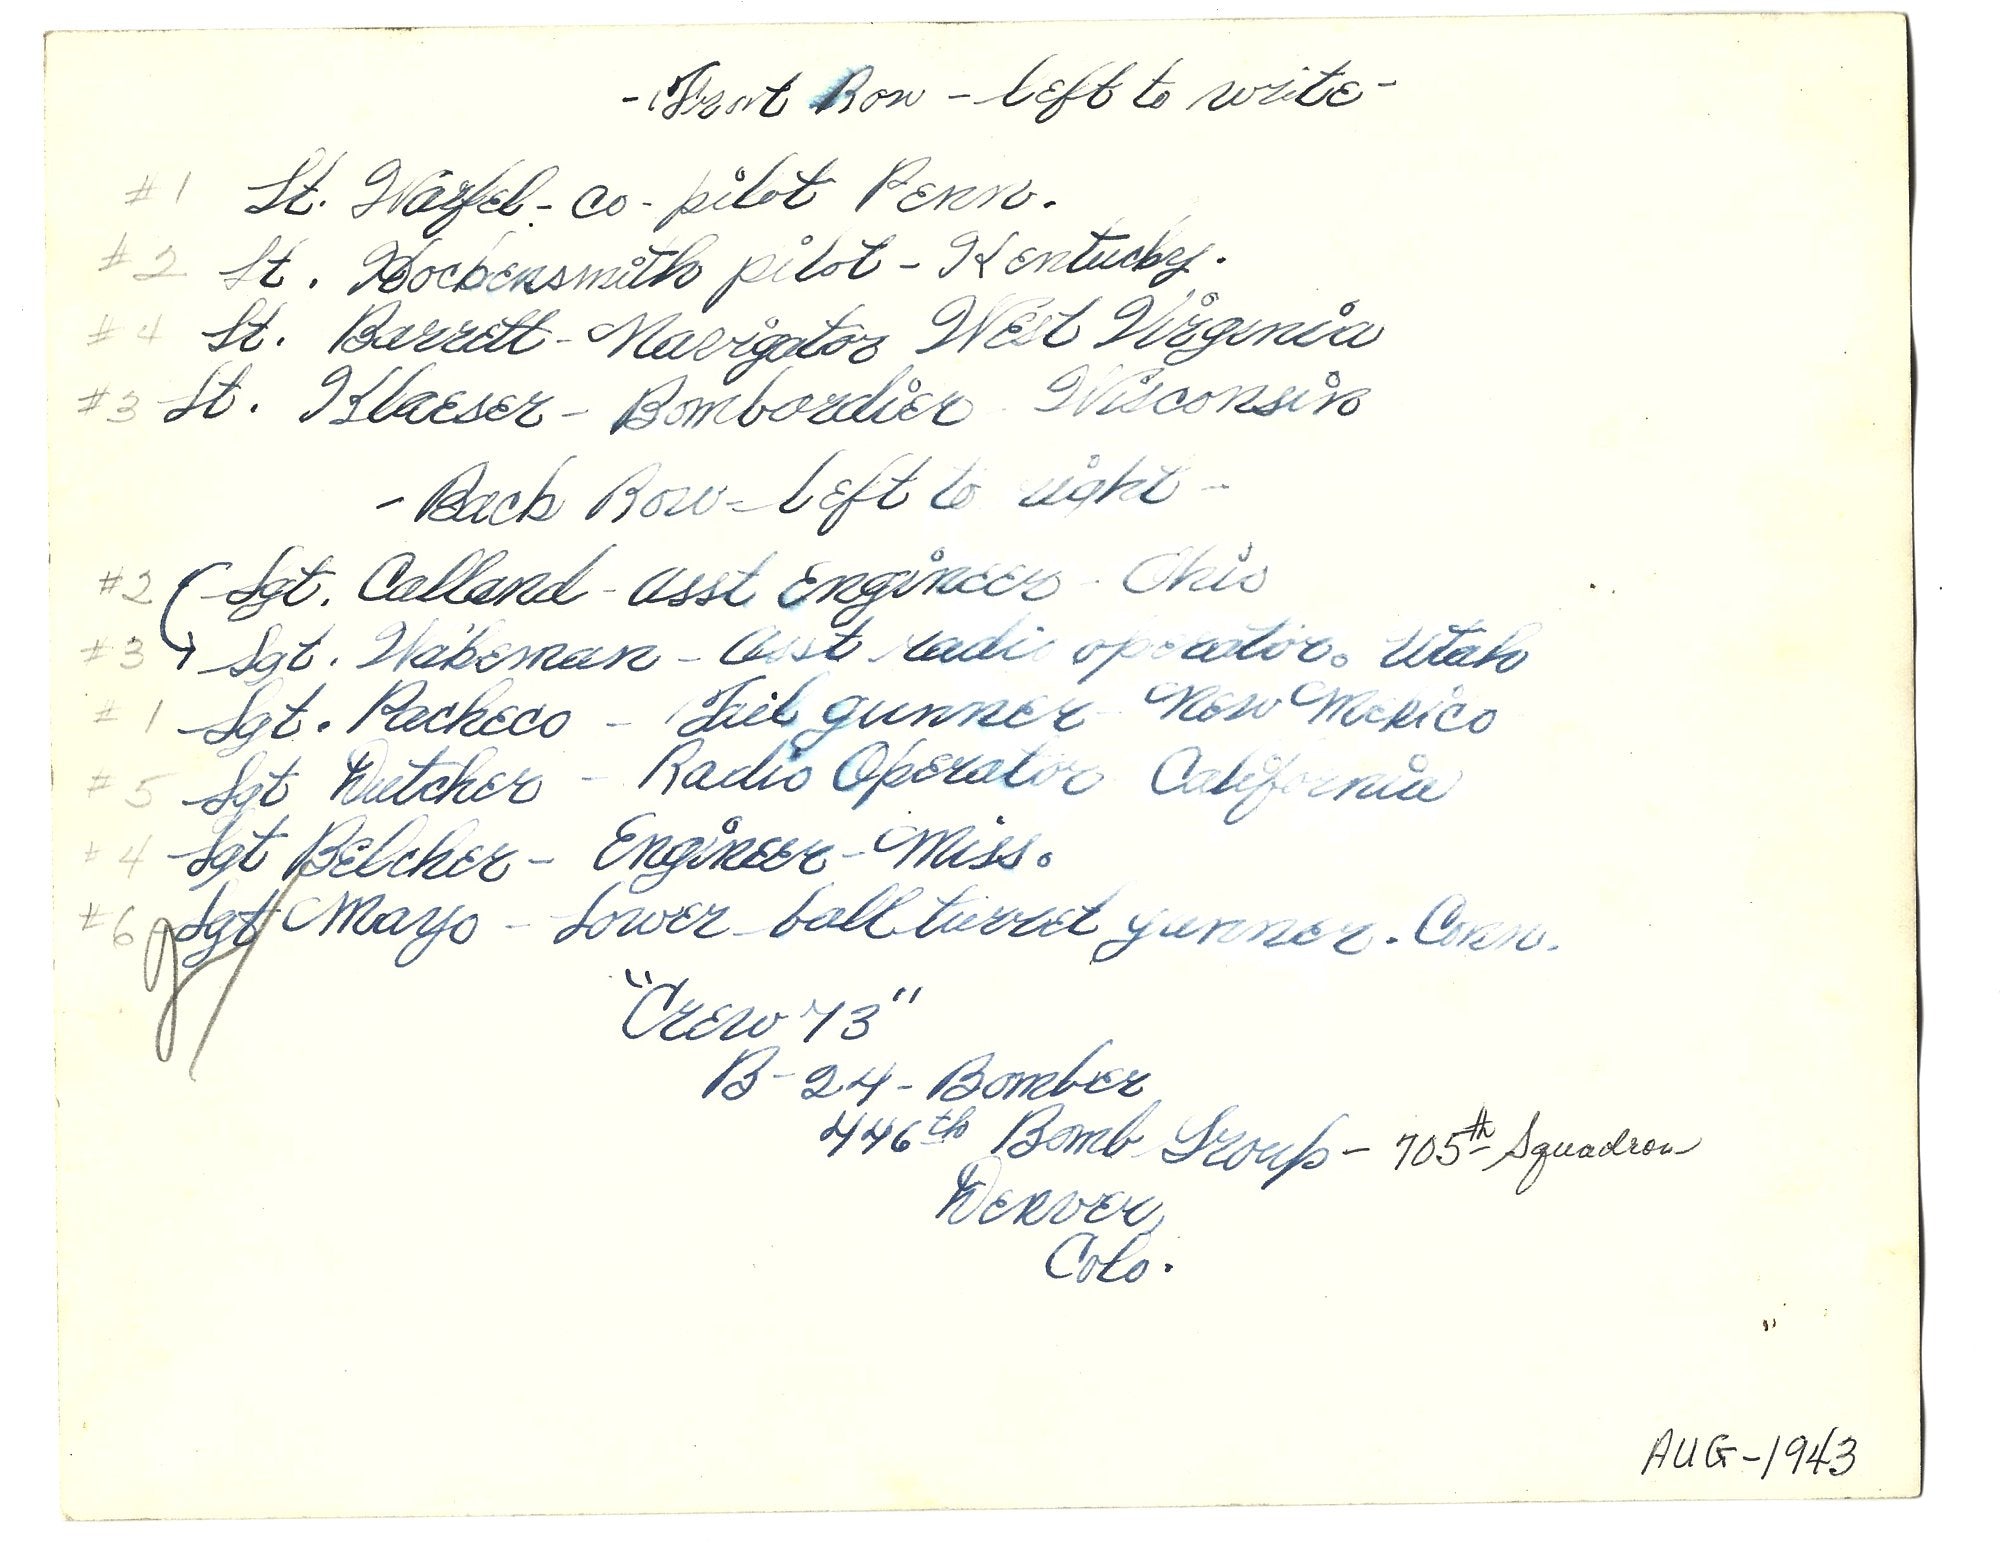 - Front Row - left to write -
#1 Lt. Warfel - co-pilot Penn.
#2 Lt. Hockensmith pilot - Kentucky.
#4 Lt. Barrett - Navigator West Virginia
#3 Lt. Klaeser - Bombardier Wisconsin
- Back Row - left to right -
#2 Sgt. Calland - asst Engineer - Ohio
#3 Sgt. Wakeman - Asst radio operator. Utah
#1 Sgt. Pacheco - Tail gunner - New Mexico
#5 Sgt Dutcher - Radio Operator California
#4 Sgt Belcher - Engineer - Miss.
#6 Sgt Mayo - Lower ball turret gunner. Conn.
"Crew 73"
B-24 - Bomber
446th Bomb Group - 705th Squadron
Denver,
Colo.
AUG-1943